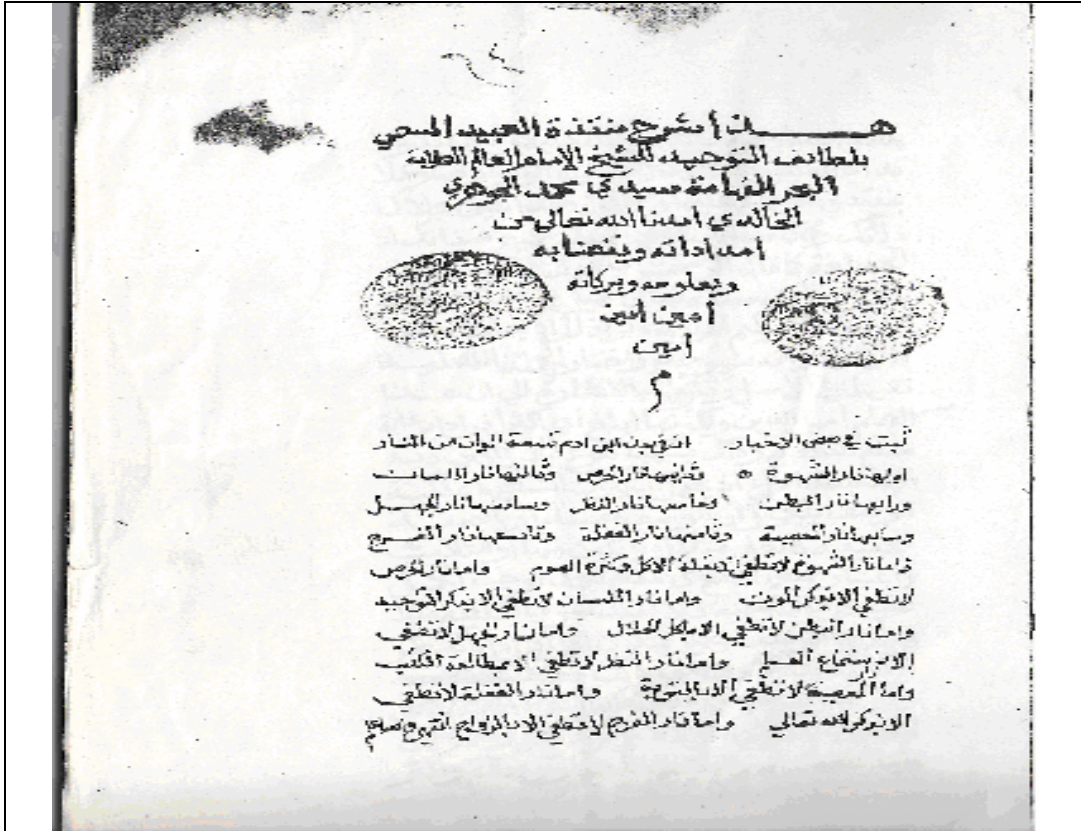 هذا شرح منقذة العبيد المسمى
بلطائف التوحيد للشيخ الإمام العالم العلامة
البحر الفهامة سيدي محمد الجوهري
الخالدي امدنا الله تعالى من
امداداته ونفعنا به
وبعلومه وبركاته
أمين أمين
امين
م
في بعض الاخبار ان في بدن ابن ادم تسعة الوان من النار
اولها نار الشهوة وثانيها نار الحرص وثالثها نار اللسان
ورابعها نار البطن وخامسها نار النظر وسادسها نار الجهل
وسابعها نار المعصية وثامنها نار الغفلة وتاسعها نار الفرج
واما نار الشهوة لا تنطفي الا بقلة الاكل وكثرة الصوم واما نار الحرص
لا تنطفي الا بذكر الموت واما نار اللسان لا تنطفي الا بذكر التوحيد
واما نار البطن لا تنطفي الا باكل الحلال واما نار الجهل لا تنطفي
إلا باستماع العلم واما نار النظر لا تنطفي الا بمطالعة الكتب
واما المعصية لا تنطفي الا بالتوبة واما نار الغفلة لا تنطفي
الا بذكر الله تعالى واما نار الفرج لا تنطفي الا بالزواج